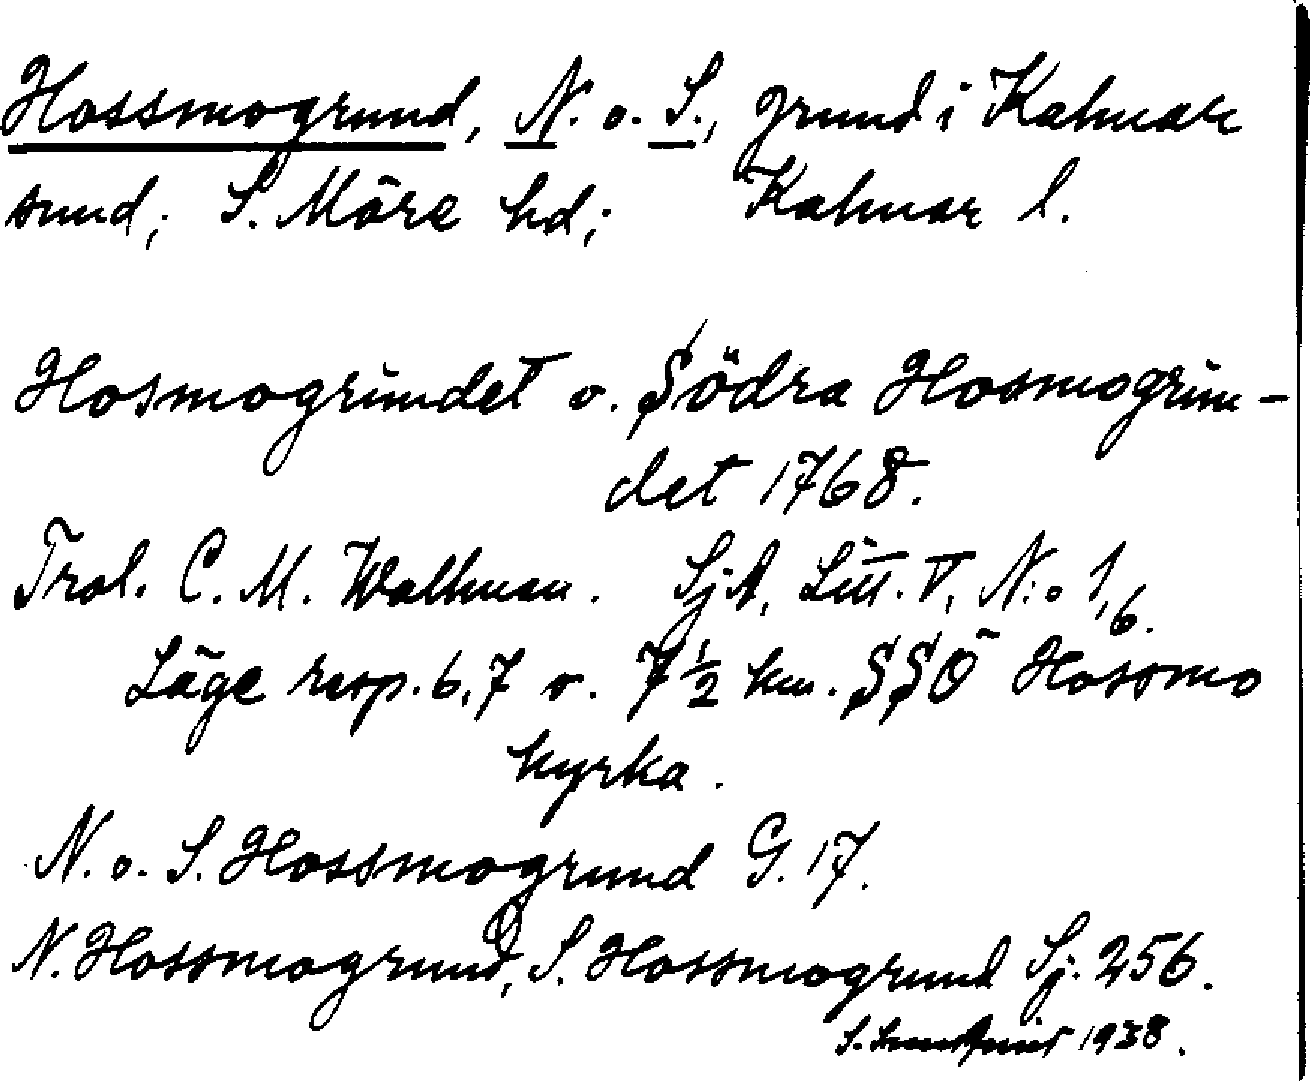 Hossmogrund, N. o. S., grund i Kalmar
sund; S. Möre hd; Kalmar l.
Hosmogrundet o. Södra Hosmogrun-
det 1768.
Trol. C. M. Wallman. SjA, Litt. V, N:o 1,6.
Läge resp. 6,7 o. 7 1/2 km. SSÖ Hossmo
kyrka.
N. o. S. Hossmogrund G. 17.
N. Hossmogrund, S. Hossmogrund Sj. 256.
S. 1938.